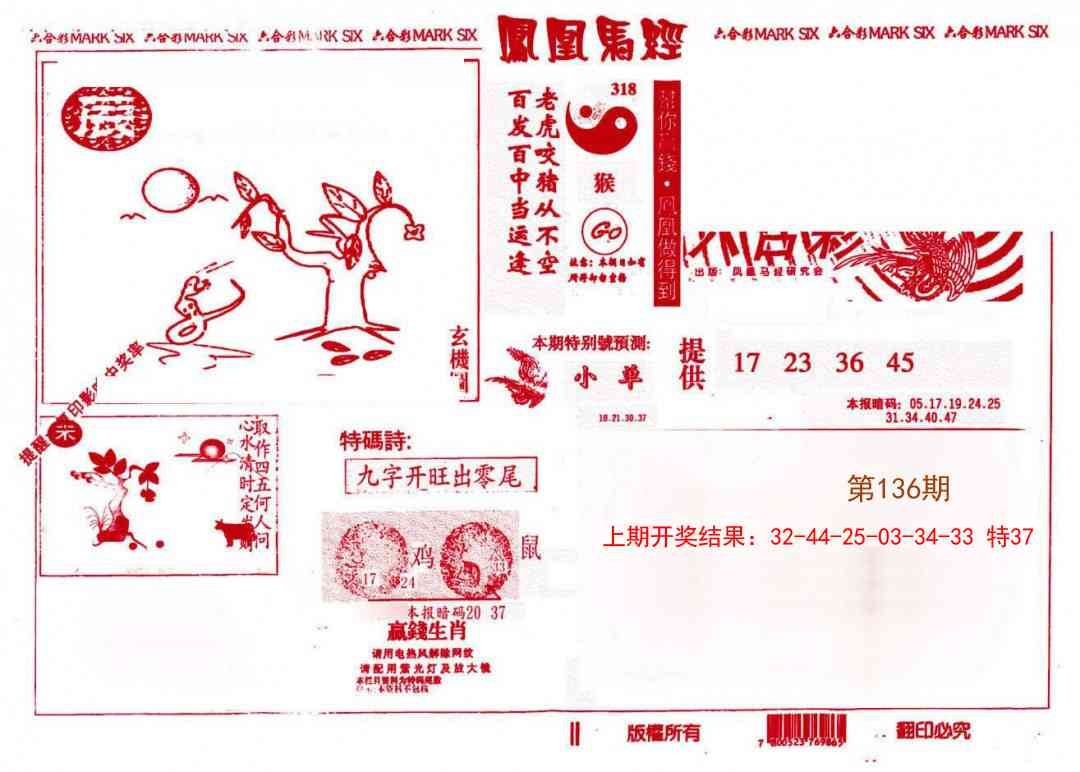 六合彩MARK SIX 六合彩MARK SIX 六合彩MARK SIX 六合彩MARK SIX
鳳凰馬經
六合彩MARK SIX 六合彩MARK SIX 六合彩MARK SIX
老虎咬猪从不空
百发百中当运逢
318
猴
Go
鳳凰做得到
出版：凤凰马经研究会
玄機圖
本期特别號預测:
小单
18.21.30.37
提供
17 23 36 45
本报暗码：05.17.19.24.25
31.34.40.47
取作四五何人问
心水清时定发财
特碼詩:
九字开旺出零尾
17
24
鸡
33
鼠
本报暗码20 37
赢錢生肖
请用电热风解除网纹
请配用紫光灯及放大镜
第136期
上期开奖结果：32-44-25-03-34-33 特37
版權所有
7 800523 769865
翻印必究